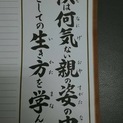 は何気ない親の姿の中
としての生き方を学ん